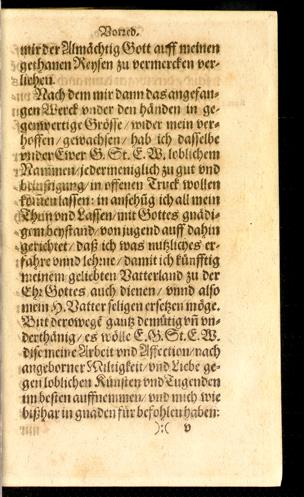 Vorred.
mir der Allmächtig Gott auff meinen
gethanen Reysen zu vermercken ver-
liehen.
Nach dem mir dann das angefan-
gen Werck vnder den händen in ge-
genwertige Grösse / wider mein ver-
hoffen / gewachsen / hab ich dasselbe
vnder Ewer G. St. E. W. loblichem
Nammen / jedermeniglich zu gut vnd
belustigung / in offenen Truck wollen
kom̃en lassen: in ansehũg ich all mein
Thun vnd Lassen / mit Gottes gnädi-
gem beystand / von jugend auff dahin
gerichtet / daß ich was nutzliches er-
fahre vnnd lehrne / damit ich künfftig
meinem geliebten Vatterland zu der
Ehr Gottes auch dienen / vnnd also
mein H. Vatter seligen ersetzen möge.
Bitt derowegẽ gantz demütig vñ vn-
derthänig / es wölle E. G. St. E. W.
dise meine Arbeit vnd Affection / nach
angeborner Miltigkeit / vnd Liebe ge-
gen loblichen Künsten vnd Tugenden
im besten auffnemmen / vnd mich wie
bißhar in gnaden für befohlen haben:
):( v